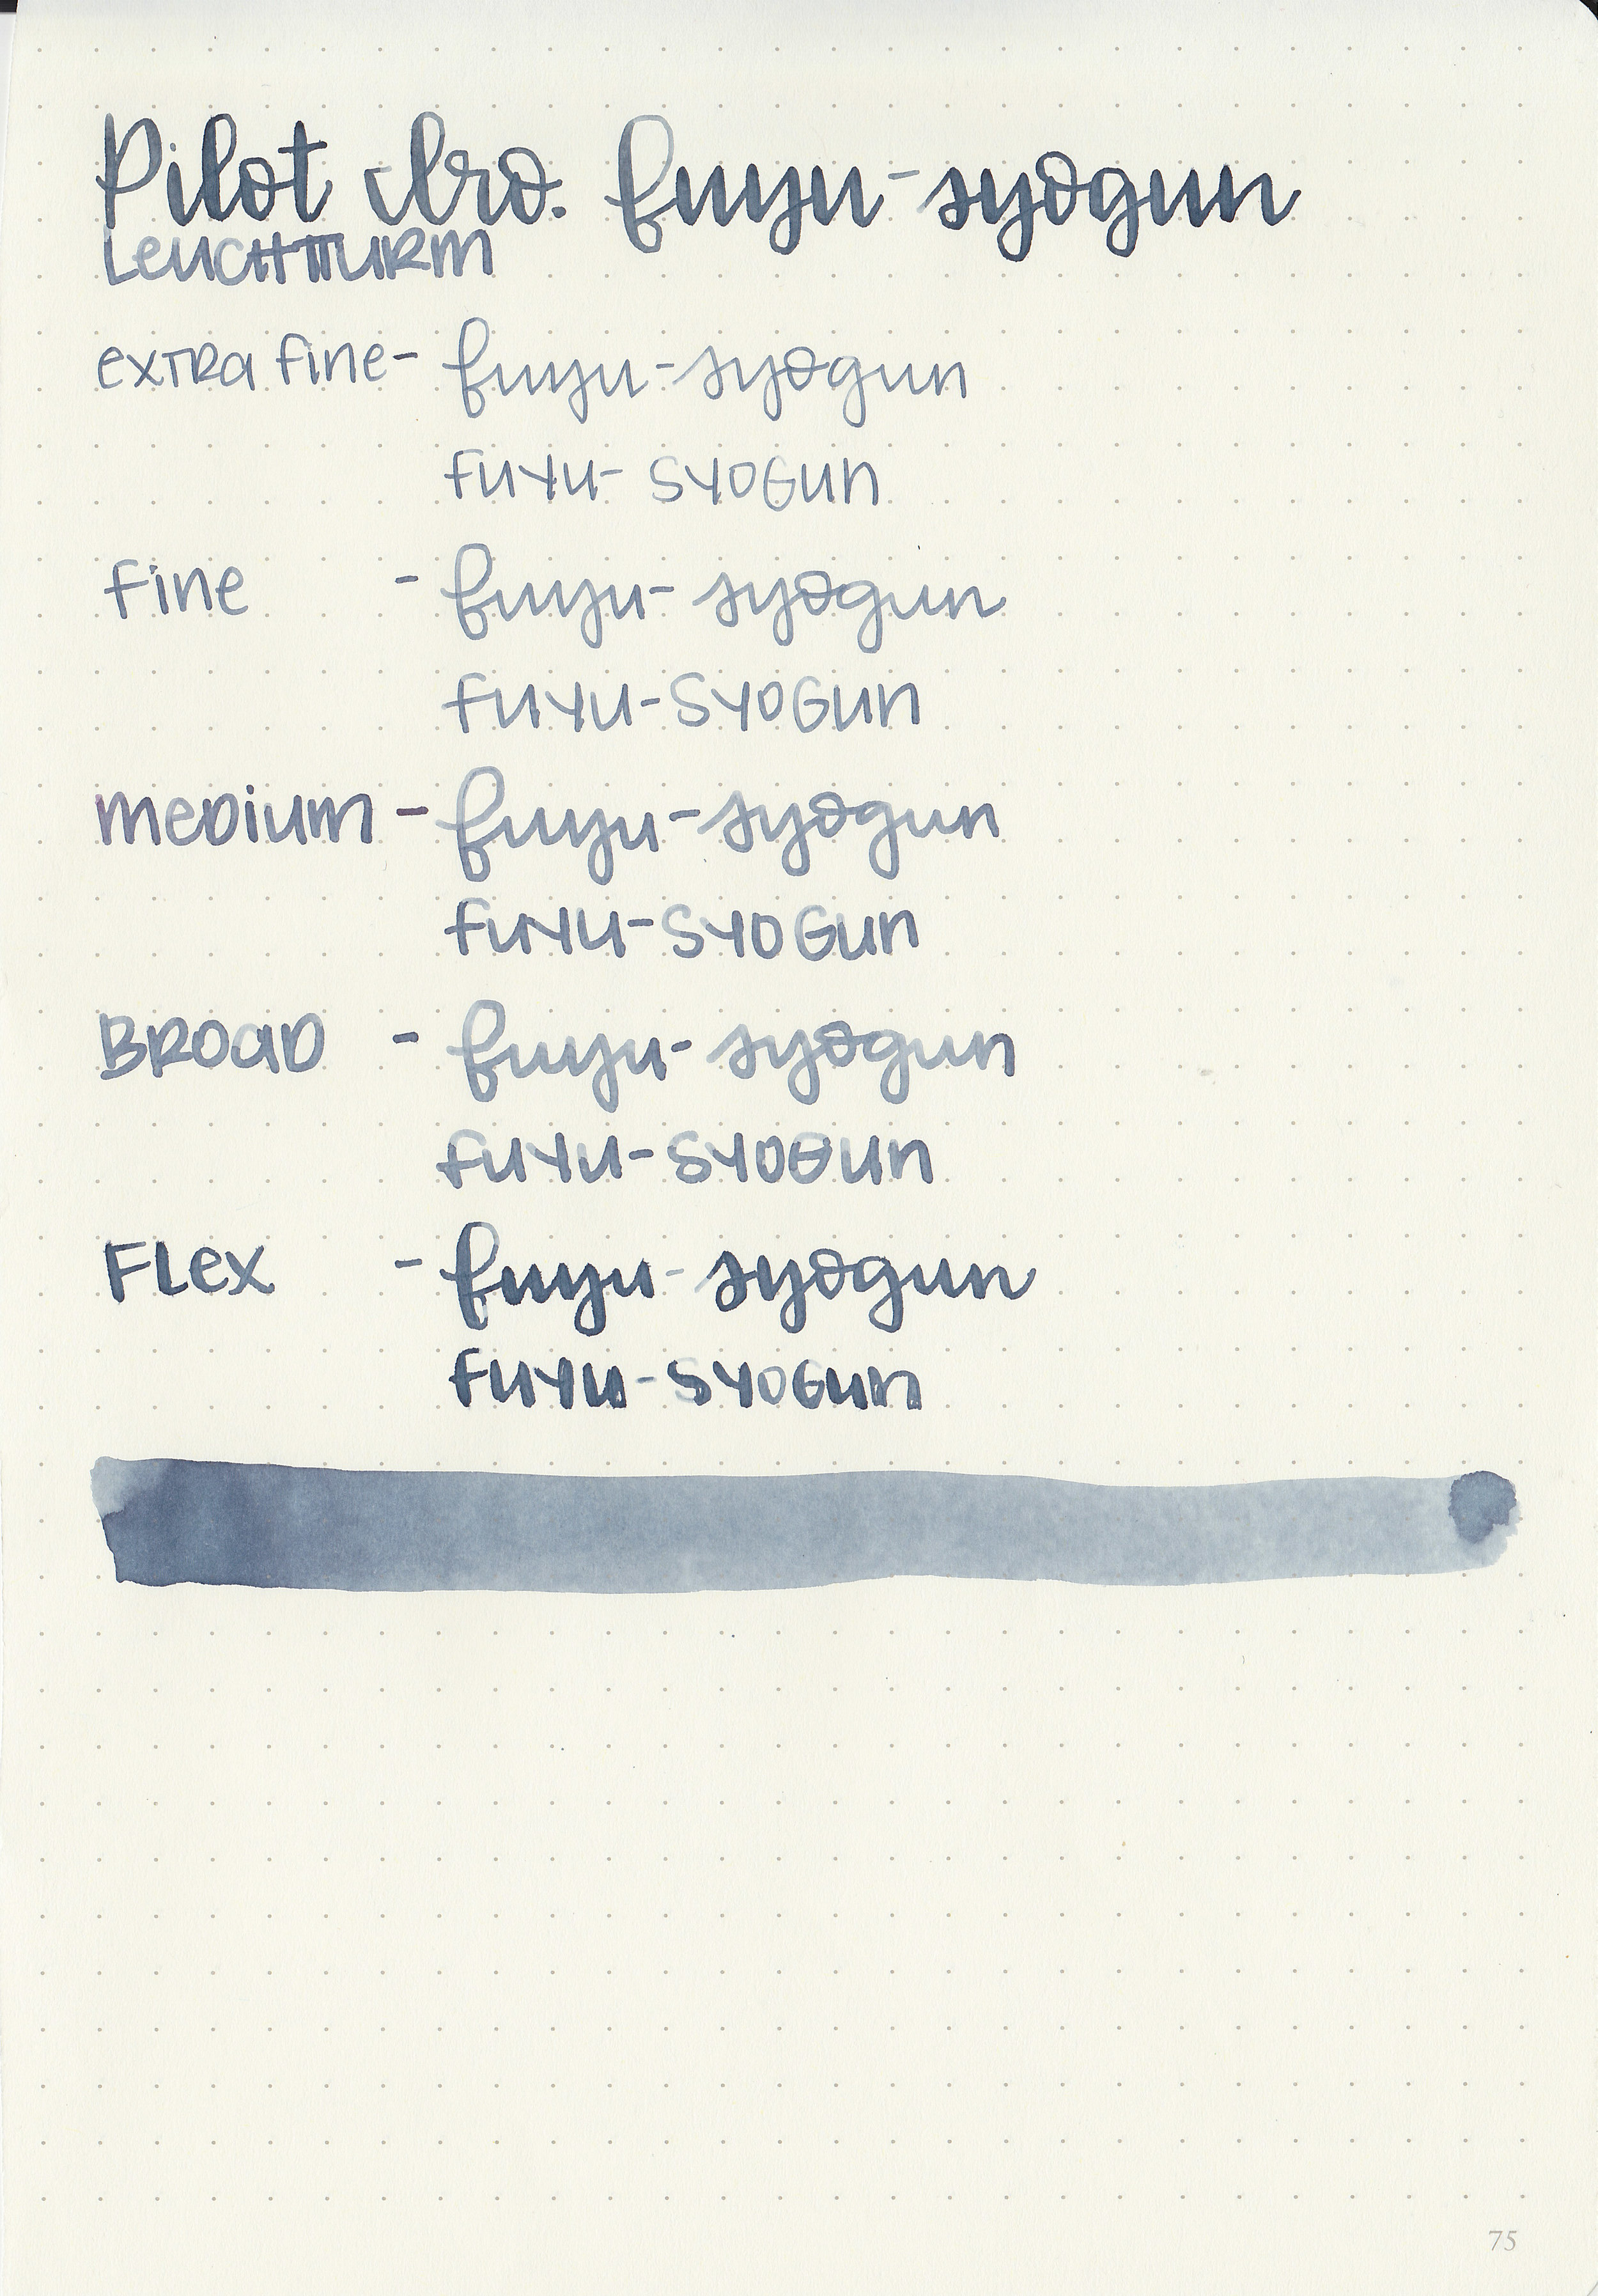 Pilot iro. fuyu-syogun
LEUCHTTURM
extra fine- fuyu-syogun
fuyu- syogun
fine - fuyu- syogun
fuyu-syogun
medium - fuyu-syogun
fuyu-syogun
Broad - fuyu- syogun
fuyu-syogun
Flex - fuyu- syogun
fuyu-syogun
75